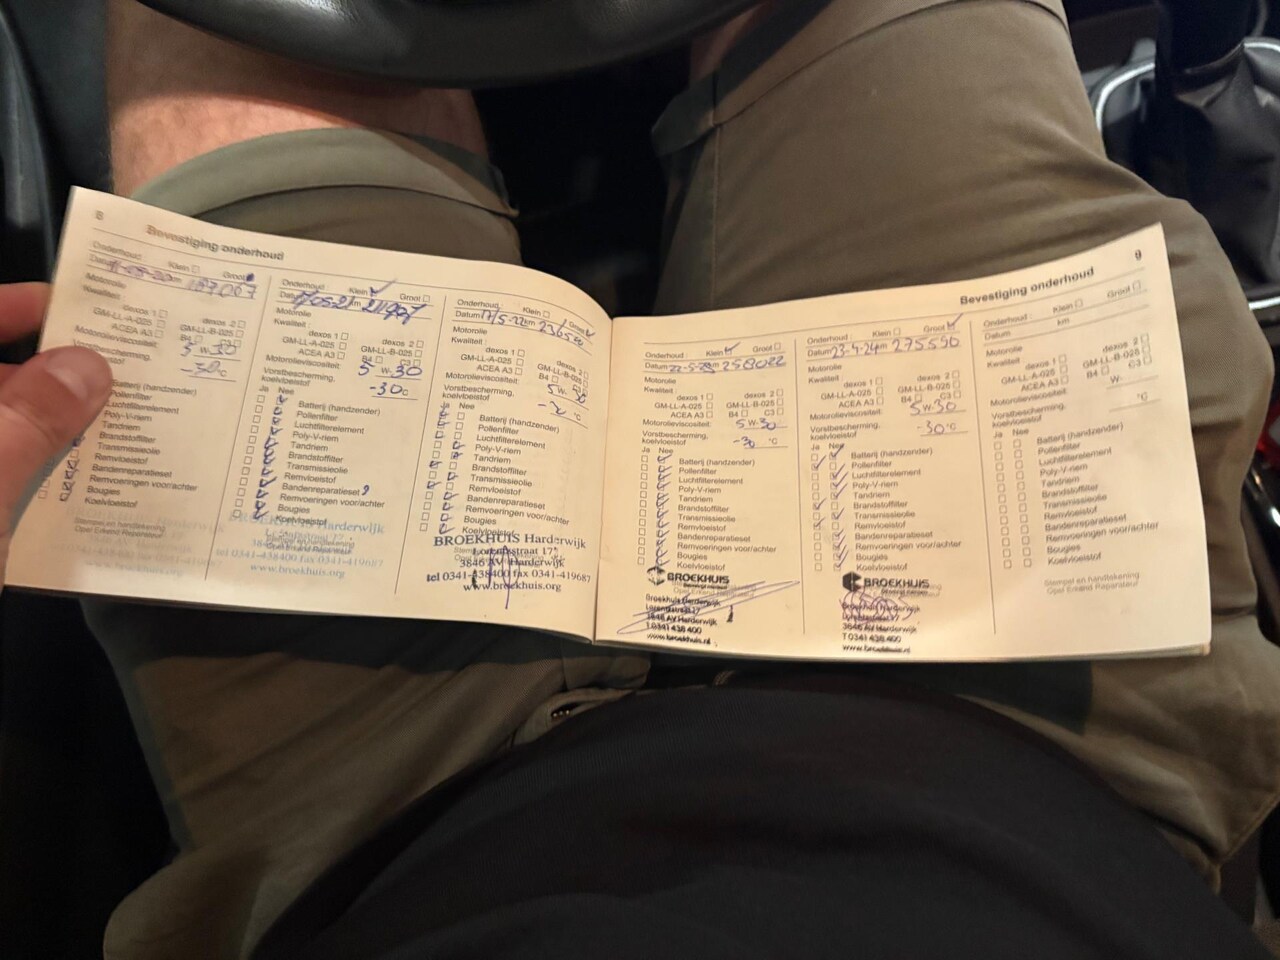 Bevestiging onderhoud
Onderhoud: Klein Groot
Datum km 187067
Motorolie
Kwaliteit:
dexos 1 dexos 2
GM-LL-A-025 GM-LL-B-025
ACEA A3 B4 C3
Motorolieviscositeit: 5 W-30
Vorstbescherming, koelvloeistof -30°C
Batterij (handzender)
Pollenfilter
Luchtfilterelement
Poly-V-riem
Tandriem
Brandstoffilter
Transmissieolie
Remvloeistof
Bandenreparatieset
Remvoeringen voor/achter
Bougies
Koelvloeistof
Stempel en handtekening
Opel Erkend Reparateur
Onderhoud: Klein Groot
Datum km
Kwaliteit:
dexos 1 dexos 2
GM-LL-A-025 GM-LL-B-025
ACEA A3 B4 C3
Motorolieviscositeit: 5 W-30
Vorstbescherming, koelvloeistof -30°C
Ja Nee
Batterij (handzender)
Pollenfilter
Luchtfilterelement
Poly-V-riem
Tandriem
Brandstoffilter
Transmissieolie
Remvloeistof
Bandenreparatieset
Remvoeringen voor/achter
Bougies
Koelvloeistof
BROEKHUIS Harderwijk
tel 0341-438400 fax 0341-419687
www.broekhuis.org
Onderhoud: Klein Groot
Datum 17/5-22 km
Motorolie
Kwaliteit:
dexos 1 dexos 2
GM-LL-A-025 GM-LL-B-025
ACEA A3 B4 C3
Motorolieviscositeit: 5W-30
Vorstbescherming, koelvloeistof °C
Ja Nee
Batterij (handzender)
Pollenfilter
Luchtfilterelement
Poly-V-riem
Tandriem
Brandstoffilter
Transmissieolie
Remvloeistof
Bandenreparatieset
Remvoeringen voor/achter
Bougies
Koelvloeistof
BROEKHUIS Harderwijk
Lorentzstraat 17
3846 AV Harderwijk
tel 0341-438400 fax 0341-419687
www.broekhuis.org
Bevestiging onderhoud 9
Onderhoud: Klein Groot
Datum 22-5-23 km 258022
Motorolie
Kwaliteit:
dexos 1 dexos 2
GM-LL-A-025 GM-LL-B-025
ACEA A3 B4 C3
Motorolieviscositeit: 5 W-30
Vorstbescherming, koelvloeistof -30 °C
Ja Nee
Batterij (handzender)
Pollenfilter
Luchtfilterelement
Poly-V-riem
Tandriem
Brandstoffilter
Transmissieolie
Remvloeistof
Bandenreparatieset
Remvoeringen voor/achter
Bougies
Koelvloeistof
BROEKHUIS
Opel Erkend Reparateur
Broekhuis Harderwijk
Lorentzstraat 17
3846 AV Harderwijk
T 0341 438 400
www.broekhuis.nl
Onderhoud: Klein Groot
Datum 23-4-24 km 275590
Motorolie
Kwaliteit:
dexos 1 dexos 2
GM-LL-A-025 GM-LL-B-025
ACEA A3 B4 C3
Motorolieviscositeit: 5 W-30
Vorstbescherming, koelvloeistof -30 °C
Ja Nee
Batterij (handzender)
Pollenfilter
Luchtfilterelement
Poly-V-riem
Tandriem
Brandstoffilter
Transmissieolie
Remvloeistof
Bandenreparatieset
Remvoeringen voor/achter
Bougies
Koelvloeistof
BROEKHUIS
Harderwijk
3846 AV Harderwijk
T 0341 438 400
www.broekhuis.nl
Onderhoud: Klein Groot
Datum km
Motorolie
Kwaliteit:
dexos 1 dexos 2
GM-LL-A-025 GM-LL-B-025
ACEA A3 B4 C3
Motorolieviscositeit: W-
Vorstbescherming, koelvloeistof °C
Ja Nee
Batterij (handzender)
Pollenfilter
Luchtfilterelement
Poly-V-riem
Tandriem
Brandstoffilter
Transmissieolie
Remvloeistof
Bandenreparatieset
Remvoeringen voor/achter
Bougies
Koelvloeistof
Stempel en handtekening
Opel Erkend Reparateur